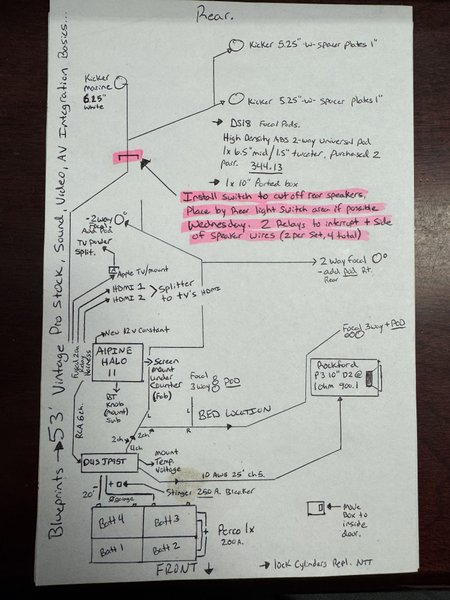 Rear.
Blueprints → 53' Vintage Pro Stock, Sound, Video, AV Integration Basics...
Kicker 5.25" -w- spacer plates 1"
Kicker
marine
6.25"
white
Kicker 5.25" -w- spacer plates 1"
→ DS18 Focal Pods.
High Density ABS 2-way Universal Pod
1x 6.5" mid / 1.5" tweeter. Purchased 2
pair. 344.13
→ 1x 10" Ported box
Install switch to cut off rear speakers.
Place by Rear light switch area if possible
Wednesday. 2 Relays to interrupt + side
of speaker wires (2 per set, 4 total)
- 2 way
Add Pod
TV power
Split.
→ 2 way focal
- add Pod Rt.
Rear
Apple TV/mount
HDMI 1
HDMI 2
Splitter
to TV's HDMI
New 12v constant
Fused 20a
Harness
ALPINE
HALO
11
→ Screen
mount
under
counter
(Fab)
Focal
3way
POD
Focal 3way + POD
Rockford
P3 10" D2 @
1 ohm 900.1
BT
Knob
(mount)
Sub
RCA 6ch.
L
L
R
BED LOCATION
2ch
2ch
4ch
D4S JP15T
→ mount
Temp.
Voltage
10 AWG 25' ch5.
20'
+
Stinger 250 A. Breaker
0 gauge
Batt 4
Batt 3
Batt 1
Batt 2
Perco 1x
200A.
← move
Box to
inside
door.
FRONT ↓
→ lock Cylinders Repl. NTT